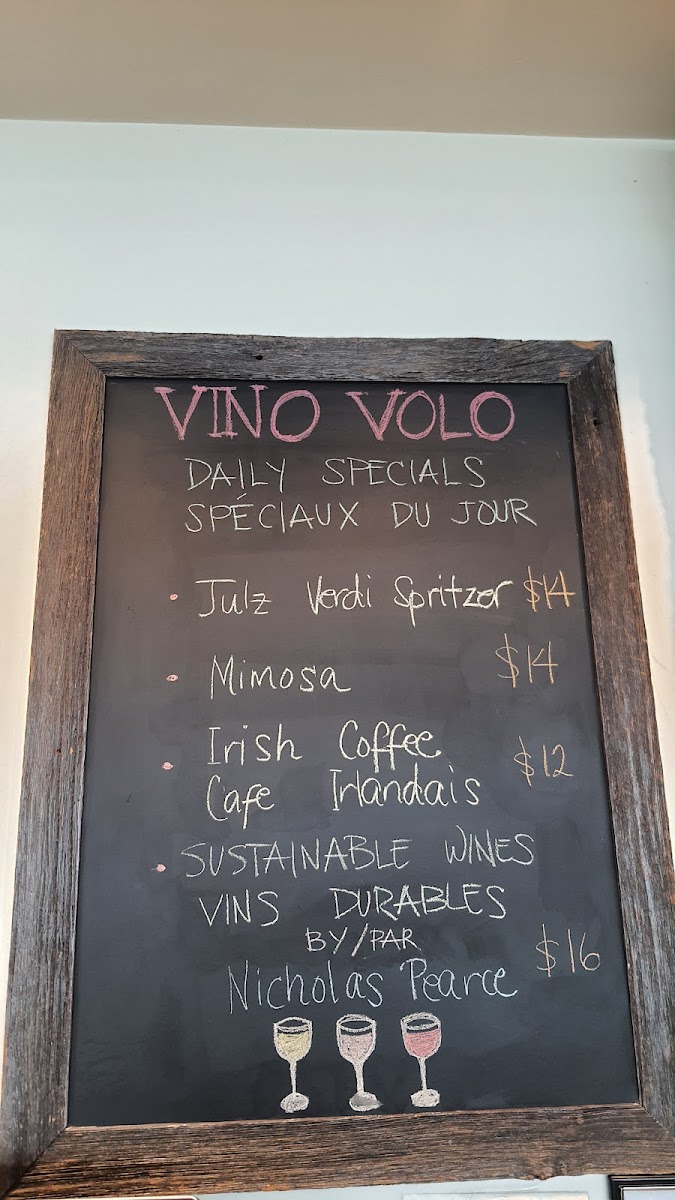 VINO VOLO
DAILY SPECIALS
SPÉCIAUX DU JOUR
• Julz Verdi Spritzer $14
• Mimosa $14
Irish Coffee
• Cafe Irlandais $12
• SUSTAINABLE WINES
VINS DURABLES
BY/PAR
Nicholas Pearce $16